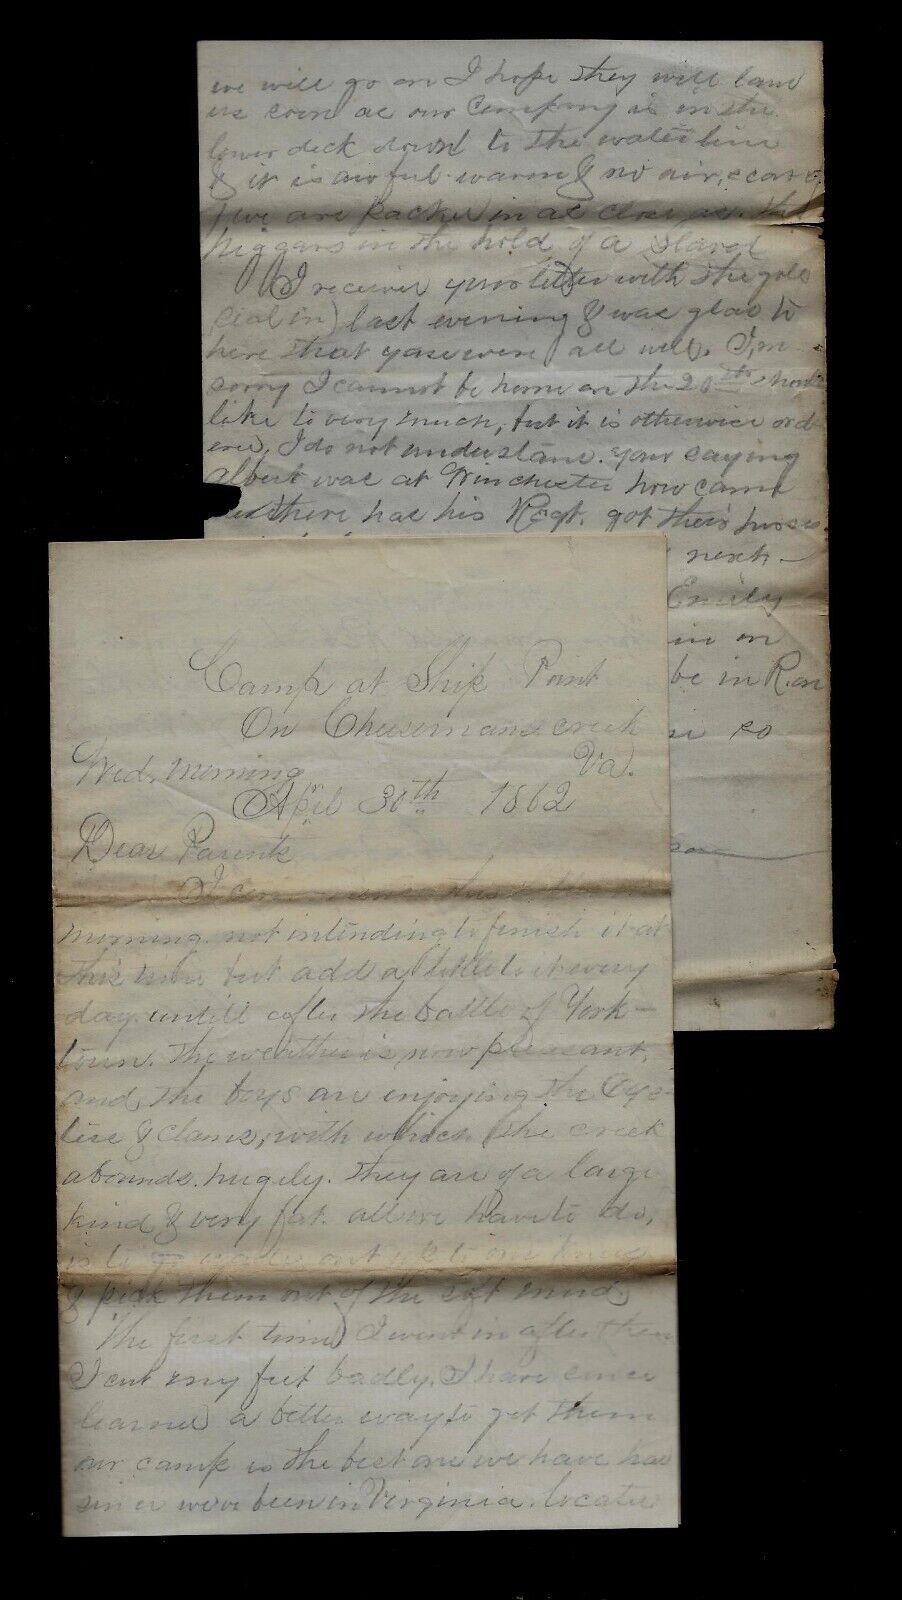 we will go on I hope they will land
us soon as our Company is in the
lower deck down to the water line
& it is awful warm & no air, scarce
& we are packed in as close as the
niggars in the hold of a slaver
I received your letter with the gold
last evening & was glad to
here that yase were all well. I,m
sorry I cannot be home on the 20th should
like to very much, but it is otherwise ord-
ered, I do not understand your saying
Albert was at Winchester how came
there has his Regt. got their
next
Emily
in on
be in R. on
so
Camp at Ship Point
On Cheesemans creek
Va.
Wed. morning
April 30th 1862
Dear Parents
I this
morning not intending to finish it at
this time but add a little to it every
day untill after the battle of York-
town. The weather is now pleasant,
and the boys are enjoying the Oys-
ters & clams, with which the creek
abounds hugely. They are of a large
kind & very fat. all we have to do,
is to go out up to our knees
& pick them out of the soft mud.
The first time I went in after them
I cut my feet badly. I have since
learned a better way to get them
our camp is the best one we have had
since we've been in Virginia. located